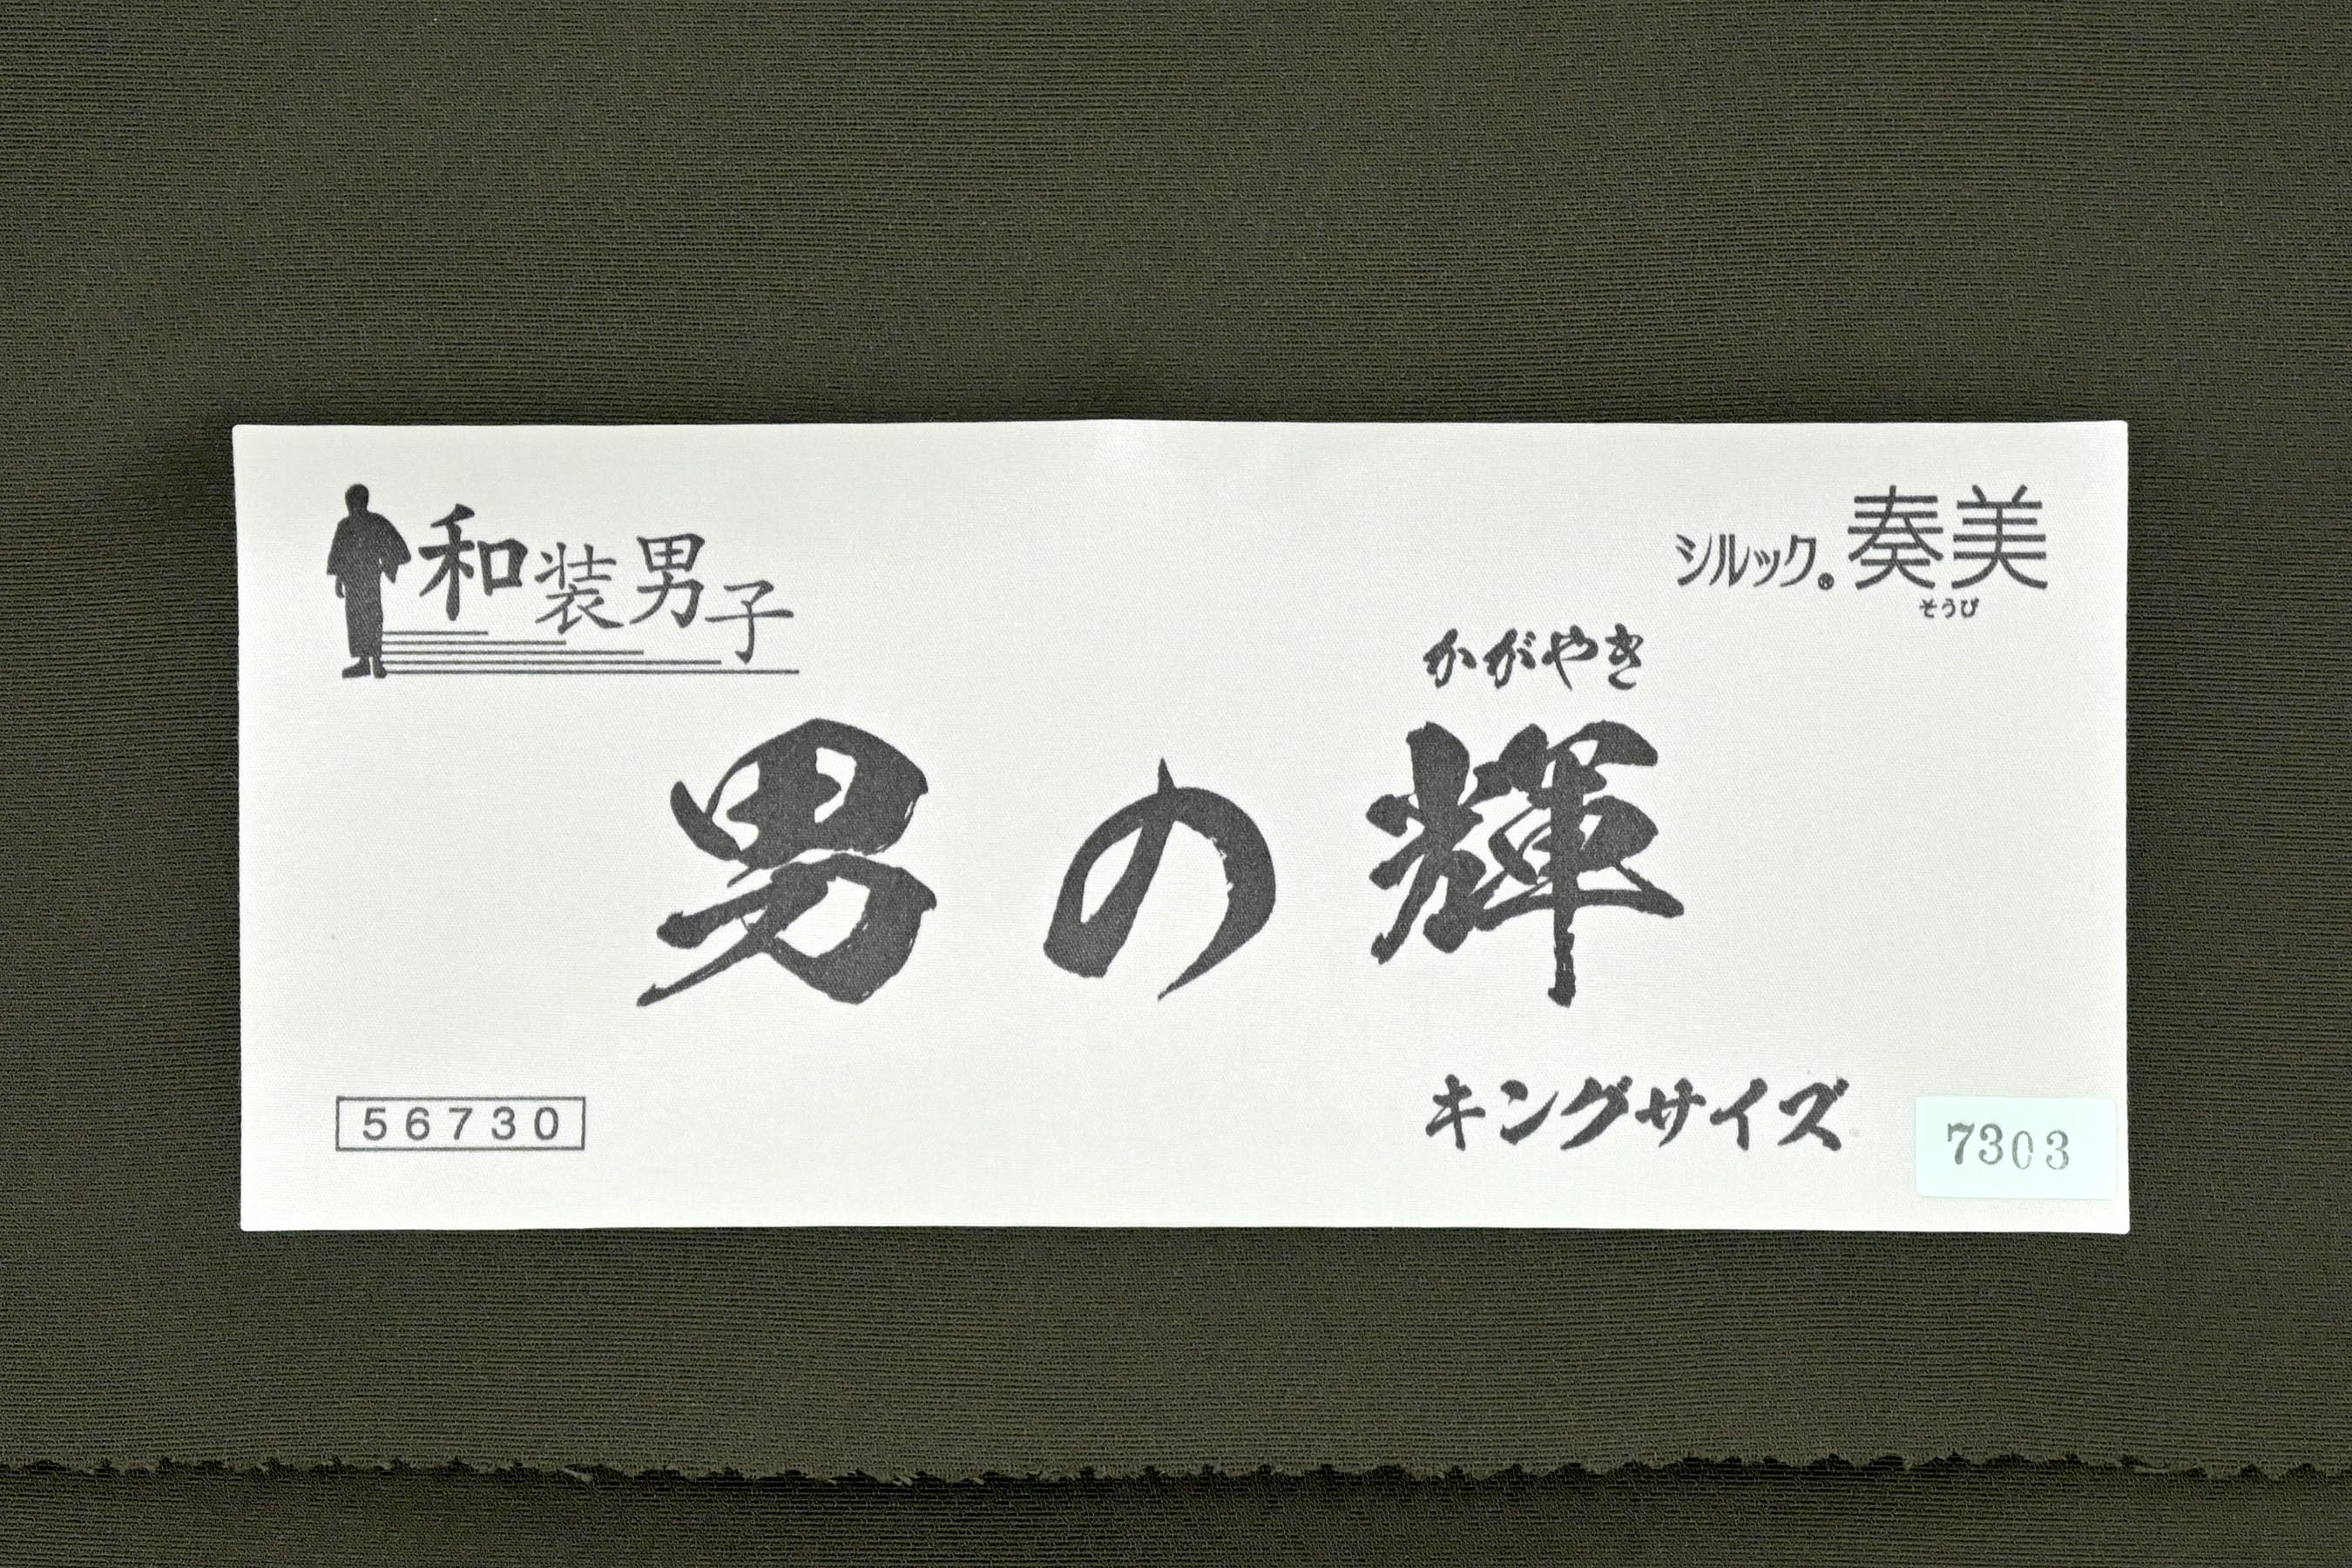 和装男子
シルック® 奏美
そうび
かがやき
男の輝
キングサイズ
56730
7303